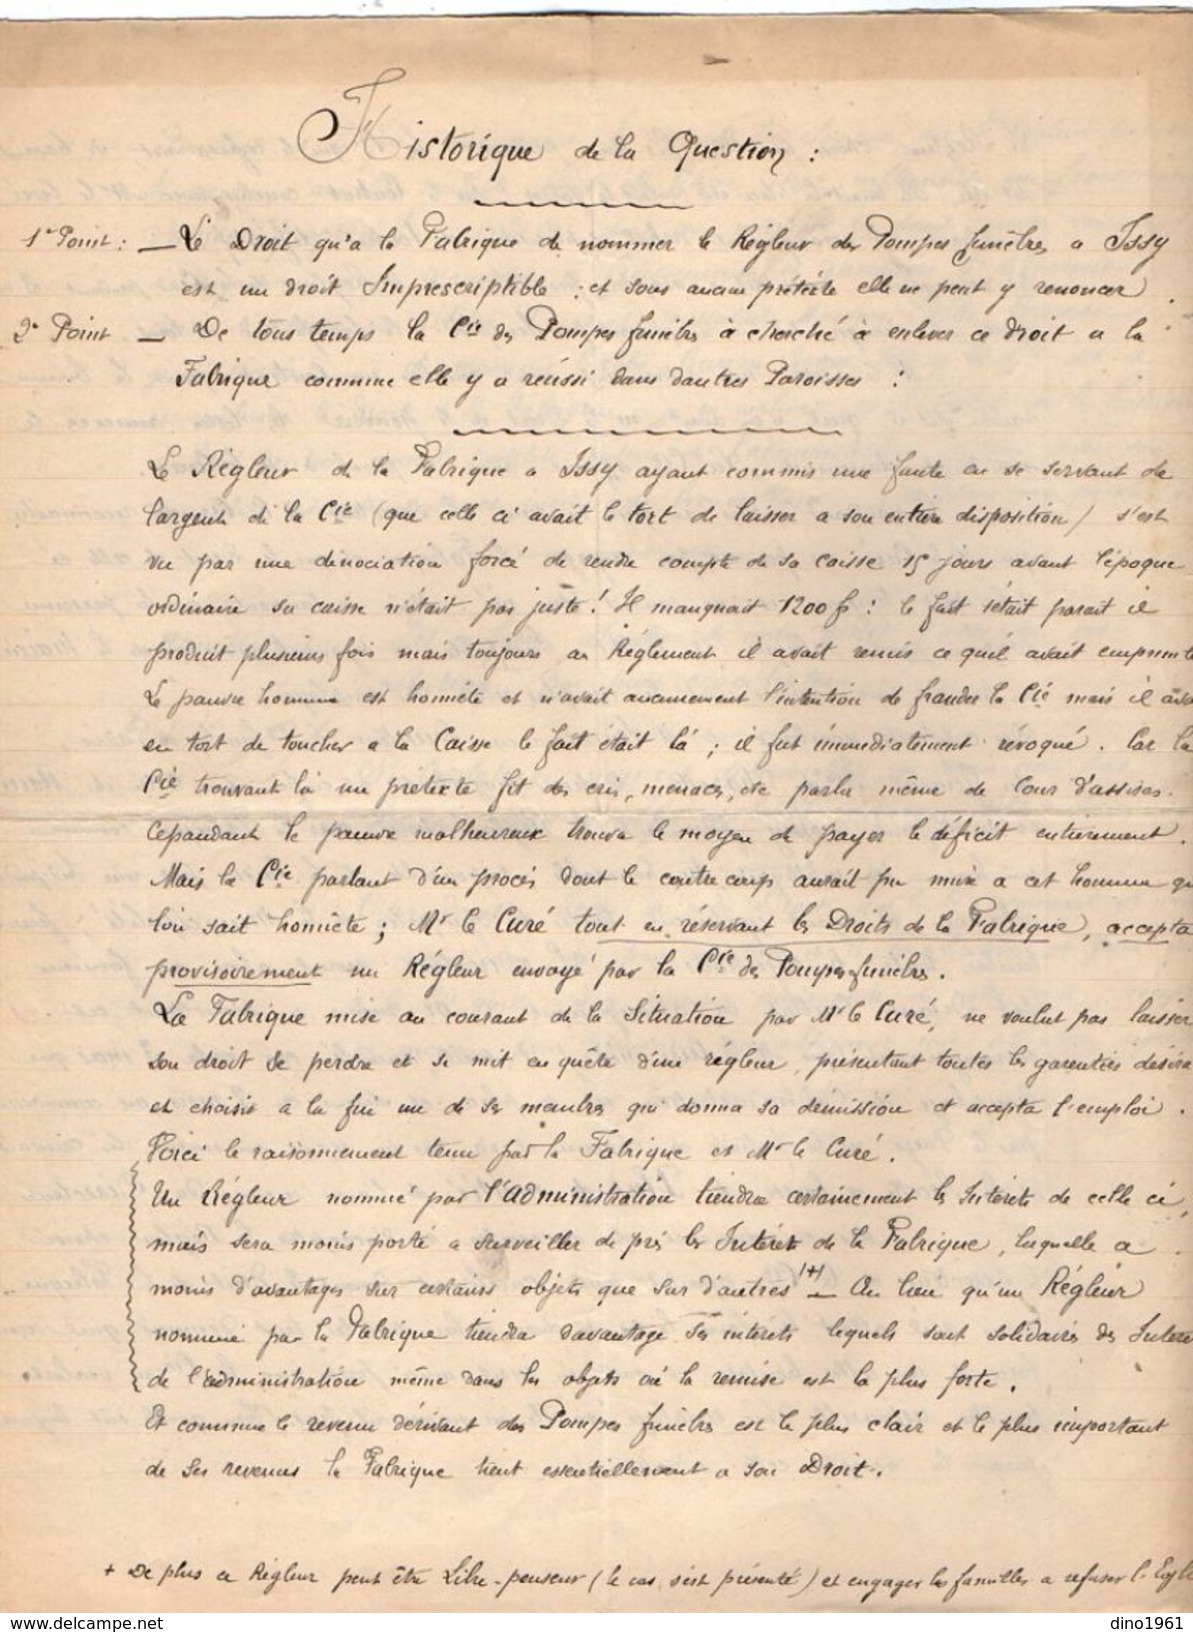 Historique de la Question :
1er Point : — Le Droit qu'a la Fabrique de nommer le Régleur des Pompes funèbres a Issy
est un droit Imprescriptible : et sous aucun prétexte elle ne peut y renoncer .
2e Point — De tous temps la Cie des Pompes funèbres à cherché à enlever ce droit a la
Fabrique comme elle y a réussi dans dautres Paroisses :
Le Régleur de la Fabrique a Issy ayant commis une faute en se servant de
largent de la Cie (que celle ci avait le tort de laisser a son entière disposition) s'est
vu par une dénociation forcé de rendre compte de sa caisse 15 jours avant l'époque
ordinaire sa caisse n'était pas juste ! Il manquait 1200 f : le fait s'était parait il
produit plusieurs fois mais toujours au Réglement il avait remis ce quil avait emprunté
Le pauvre homme est honnète et n'avait aucunement l'intention de frauder la Cie mais il avait
eu tort de toucher a la Caisse le fait était là ; il fut immédiatement révoqué . Car la
Cie trouvant là un prétexte fit des cris, menaces, etc parla même de Cour d'assises.
Cependant le pauvre malheureux trouva le moyen de payer le déficit entièrement .
Mais la Cie parlant d'un procès dont le contre coup aurait pu nuire a cet homme que
lon sait honnète ; Mr le Curé tout en réservant les Droits de la Fabrique, accepta
provisoirement un Régleur envoyé par la Cie des Pompes funèbres.
La Fabrique mise au courant de la Situation par Mr le Curé, ne voulut pas laisser
son droit se perdre et se mit en quête d'un régleur, présentant toutes les garanties désirables
et choisit a la fin un de ses membres qui donna sa démission et accepta l'emploi .
Voici le raisonnement tenu par la Fabrique et Mr le Curé .
Un Régleur nommé par l'administration tiendra certainement les Intérêts de celle ci,
mais sera moins porté a surveiller de près les Intérêts de la Fabrique, laquelle a
moins d'avantages sur certains objets que sur d'autres (+) — Au lieu qu'un Régleur
nommé par la Fabrique tiendra davantage ses intérêts lequels sont solidaires des Intérêts
de l'administration même dans les objets où la remise est la plus forte .
Et comme le revenu dérivant des Pompes funèbres est le plus clair et le plus important
de ses revenus la Fabrique tient essentiellement a son Droit .
+ De plus ce Régleur peut être Libre-penseur (le cas s'est présenté) et engager les familles a refuser l'Eglise
dino1961